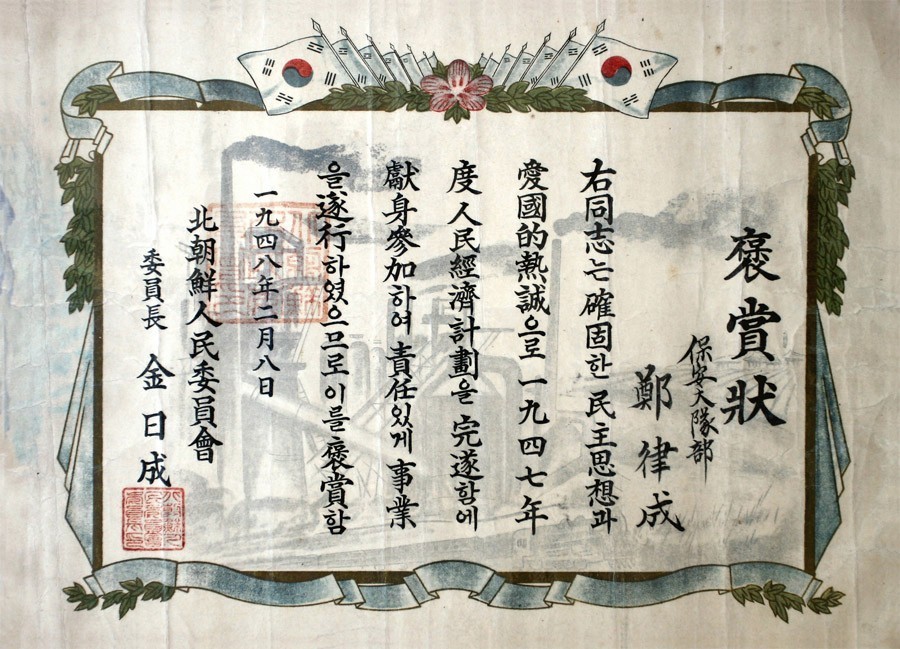 褒賞狀
保安大隊部
鄭律成
右同志는確固한民主思想과
愛國的熱誠으로一九四七年
度人民經濟計劃을完遂함에
獻身參加하여責任있게事業
을遂行하였으므로이를褒賞함
一九四八年二月八日
北朝鮮人民委員會
委員長 金日成